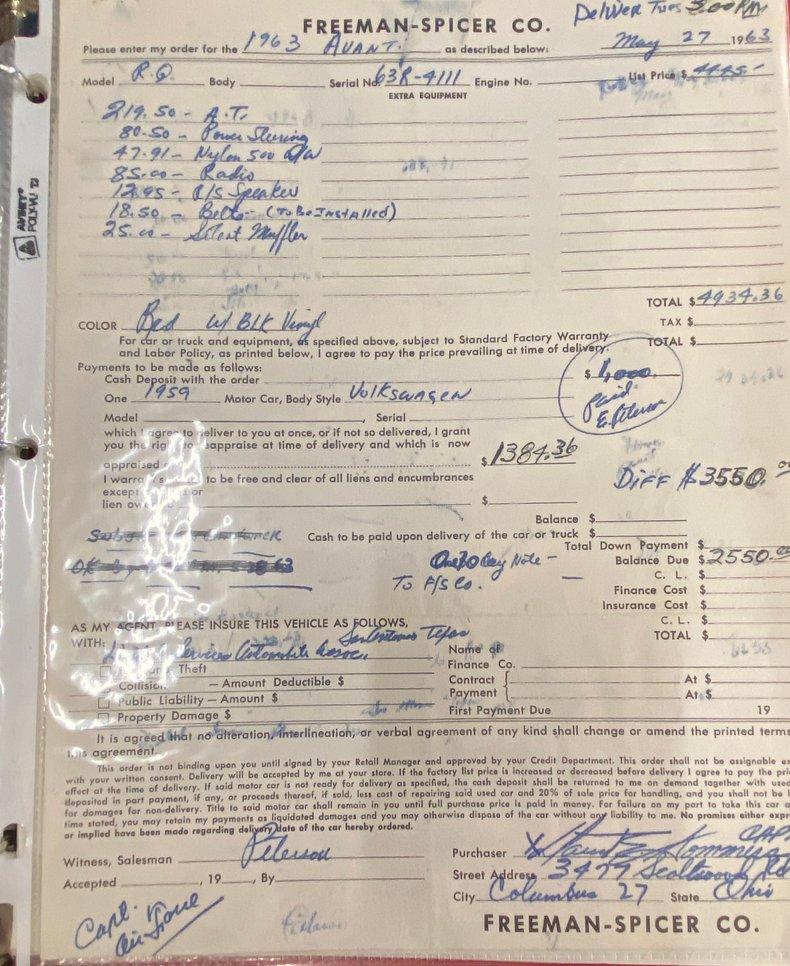 Deliver Tues 3:00 PM
FREEMAN-SPICER CO.
Please enter my order for the 1963 AVANTI as described below: May 27 1963
Model R.Q. Body Serial No. 63R-4111 Engine No. List Price $ 4445.-
EXTRA EQUIPMENT
219.50 - A.T.
80.50 - Power Steering
47.91 - Nylon 500 W/W
85.00 - Radio
12.95 - R/S Speaker
18.50 - Belts - (To Be Installed)
25.00 - Silent Muffler
TOTAL $ 4934.36
COLOR Red w/ BLK Vinyl
TAX $
For car or truck and equipment, as specified above, subject to Standard Factory Warranty
TOTAL $
and Labor Policy, as printed below, I agree to pay the price prevailing at time of delivery.
Payments to be made as follows:
Cash Deposit with the order $ 1,000.
One 1959 Motor Car, Body Style Volkswagen
Paid
E. Peterson
Model , Serial
which I agree to deliver to you at once, or if not so delivered, I grant
you the right to reappraise at time of delivery and which is now
appraised $ 1384.36
I warrant to be free and clear of all liens and encumbrances
DIFF $3550.00
except or
lien $
Balance $
Cash to be paid upon delivery of the car or truck $
Total Down Payment $
One 30 Day Note -
Balance Due $ 2550.00
To F/S Co.
C. L. $
Finance Cost $
Insurance Cost $
C. L. $
AS MY AGENT PLEASE INSURE THIS VEHICLE AS FOLLOWS,
TOTAL $
San Antonio Texas
WITH: Services Automobile Assoc.
Name of
Theft
Finance Co.
Collision — Amount Deductible $
Contract At $
Public Liability — Amount $
Payment At $
Property Damage $
First Payment Due 19
It is agreed that no alteration, interlineation, or verbal agreement of any kind shall change or amend the printed terms
this agreement.
This order is not binding upon you until signed by your Retail Manager and approved by your Credit Department. This order shall not be assignable
with your written consent. Delivery will be accepted by me at your store. If the factory list price is increased or decreased before delivery I agree to pay the
effect at the time of delivery. If said motor car is not ready for delivery as specified, the cash deposit shall be returned to me on demand together with
deposited in part payment, if any, or proceeds thereof, if sold, less cost of repairing said used car and 20% of sale price for handling, and you shall not be
for damages for non-delivery. Title to said motor car shall remain in you until full purchase price is paid in money. For failure on my part to take this car
time stated, you may retain my payments as liquidated damages and you may otherwise dispose of the car without any liability to me. No promises either
or implied have been made regarding delivery date of the car hereby ordered.
CAPT
Witness, Salesman Peterson
Purchaser X
Street Address 3479
Accepted , 19 , By
City Columbus 27 State Ohio
Capt.
Air Force
FREEMAN-SPICER CO.
AVERY®
POLY-VU T3